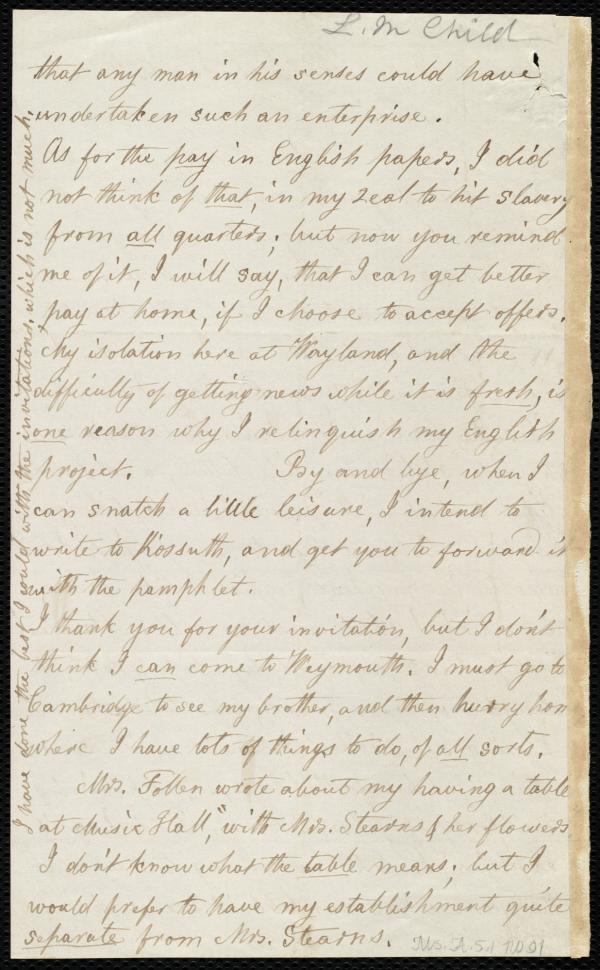 L. M Child
that any man in his senses could have
undertaken such an enterprise.
As for the pay in English papers, I did
not think of that, in my zeal to hit slavery
from all quarters; but now you remind
me of it, I will say, that I can get better
pay at home, if I choose to accept offers.
My isolation here at Wayland, and the
difficulty of getting news while it is fresh, is
one reason why I relinquish my English
project. By and bye, when I
can snatch a little leisure, I intend to
write to Kossuth, and get you to forward it
with the pamphlet.
I thank you for your invitation, but I don't
think I can come to Weymouth. I must go to
Cambridge to see my brother, and then hurry hom
where I have lots of things to do, of all sorts.
Mrs. Follen wrote about my having a table
"at Music Hall", with Mrs. Stearns & her flowers.
I don't know what the table means; but I
would prefer to have my establishment quite
separate from Mrs. Stearns.
I have done the best I could with the invitations, which is not much.
Ms. A. 5.1